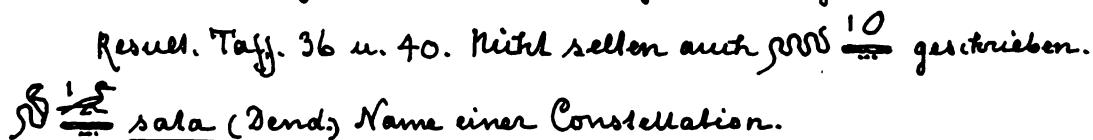 Result. Taff. 36 u. 40. Nicht selten auch geschrieben.
sata (Dend.) Name einer Constellation.